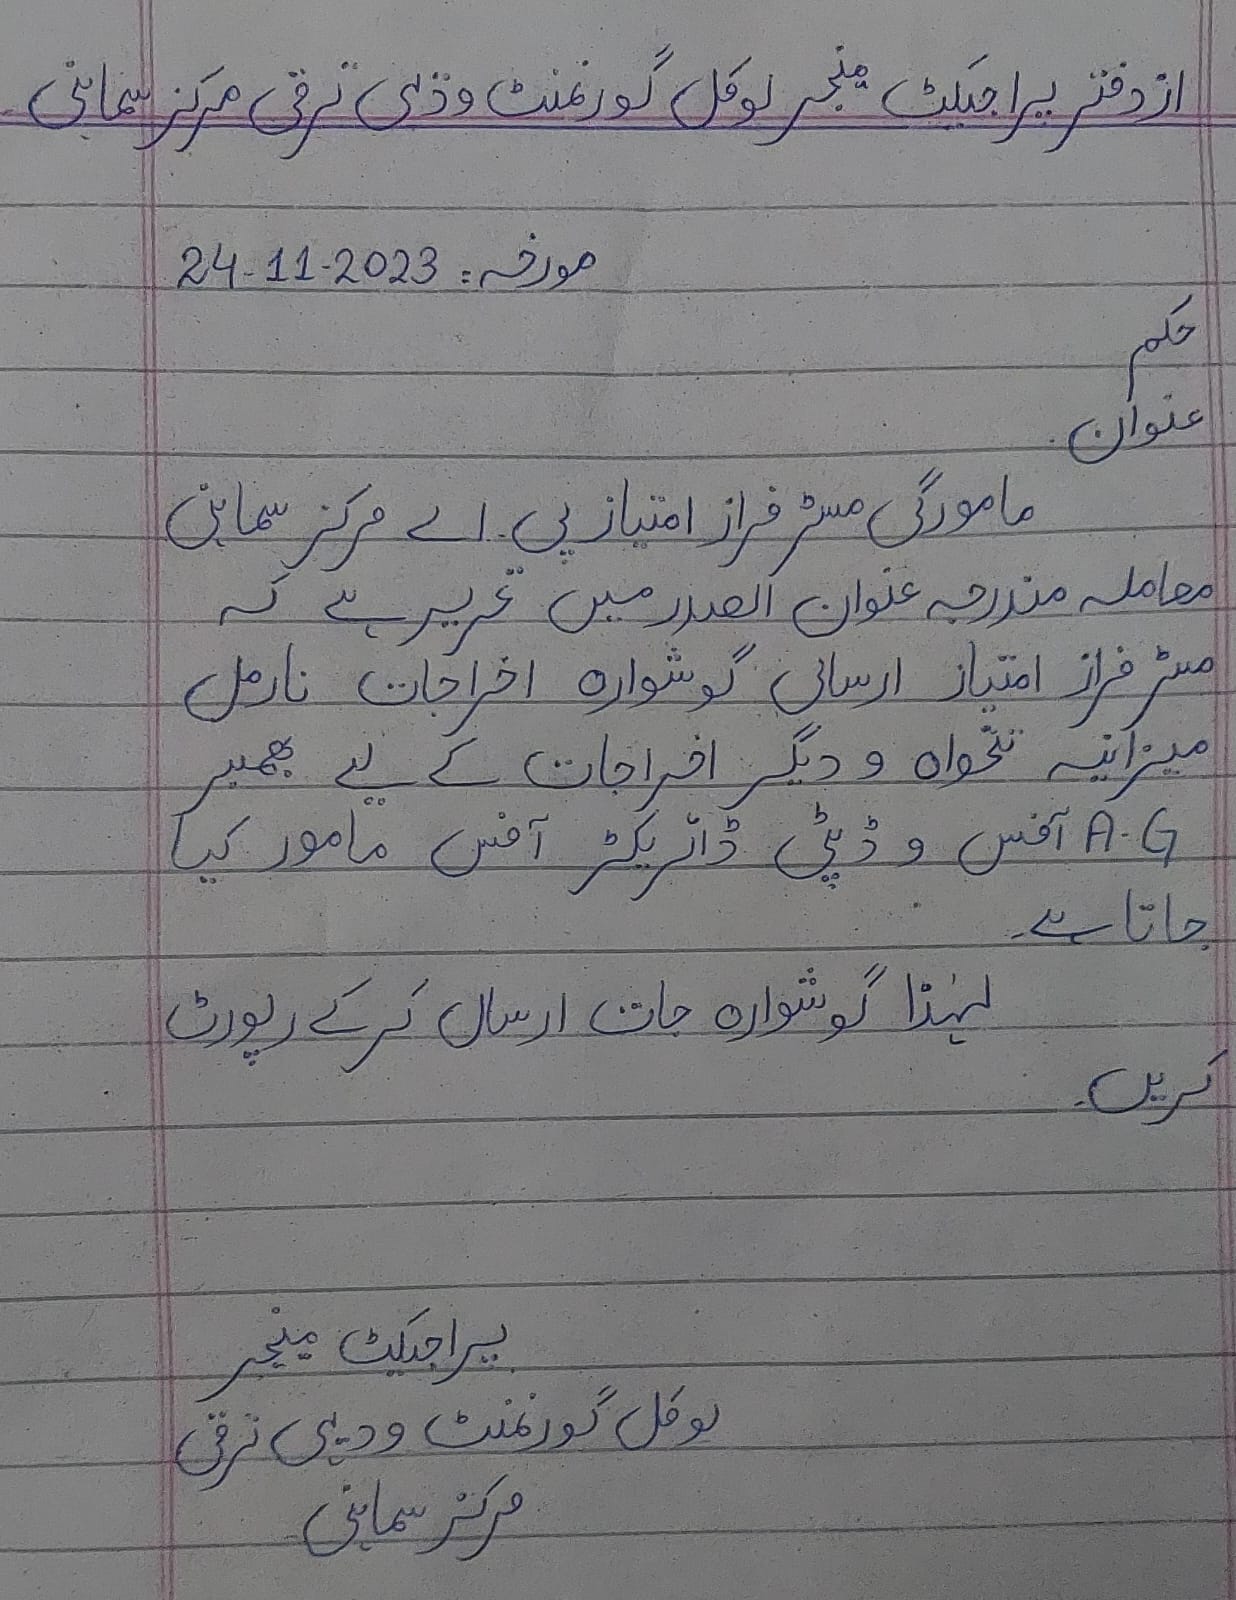 از دفتر پراجیکٹ منیجر لوکل گورنمنٹ و دیہی ترقی مرکز سماہنی
مورخہ: 24-11-2023
حکم
عنوان.
مامورگی مسٹر فراز امتیاز پی.اے مرکز سماہنی
معاملہ مندرجہ عنوان الصدر میں تحریر ہے کہ
مسٹر فراز امتیاز ارسالی گوشوارہ اخراجات نارمل
میزانیہ تنخواہ و دیگر اخراجات کے لیے بھمبر
A.G آفس و ڈپٹی ڈائریکٹر آفس مامور کیا
جاتا ہے۔
لہٰذا گوشوارہ جات ارسال کر کے رپورٹ
کریں۔
پراجیکٹ منیجر
لوکل گورنمنٹ و دیہی ترقی
مرکز سماہنی